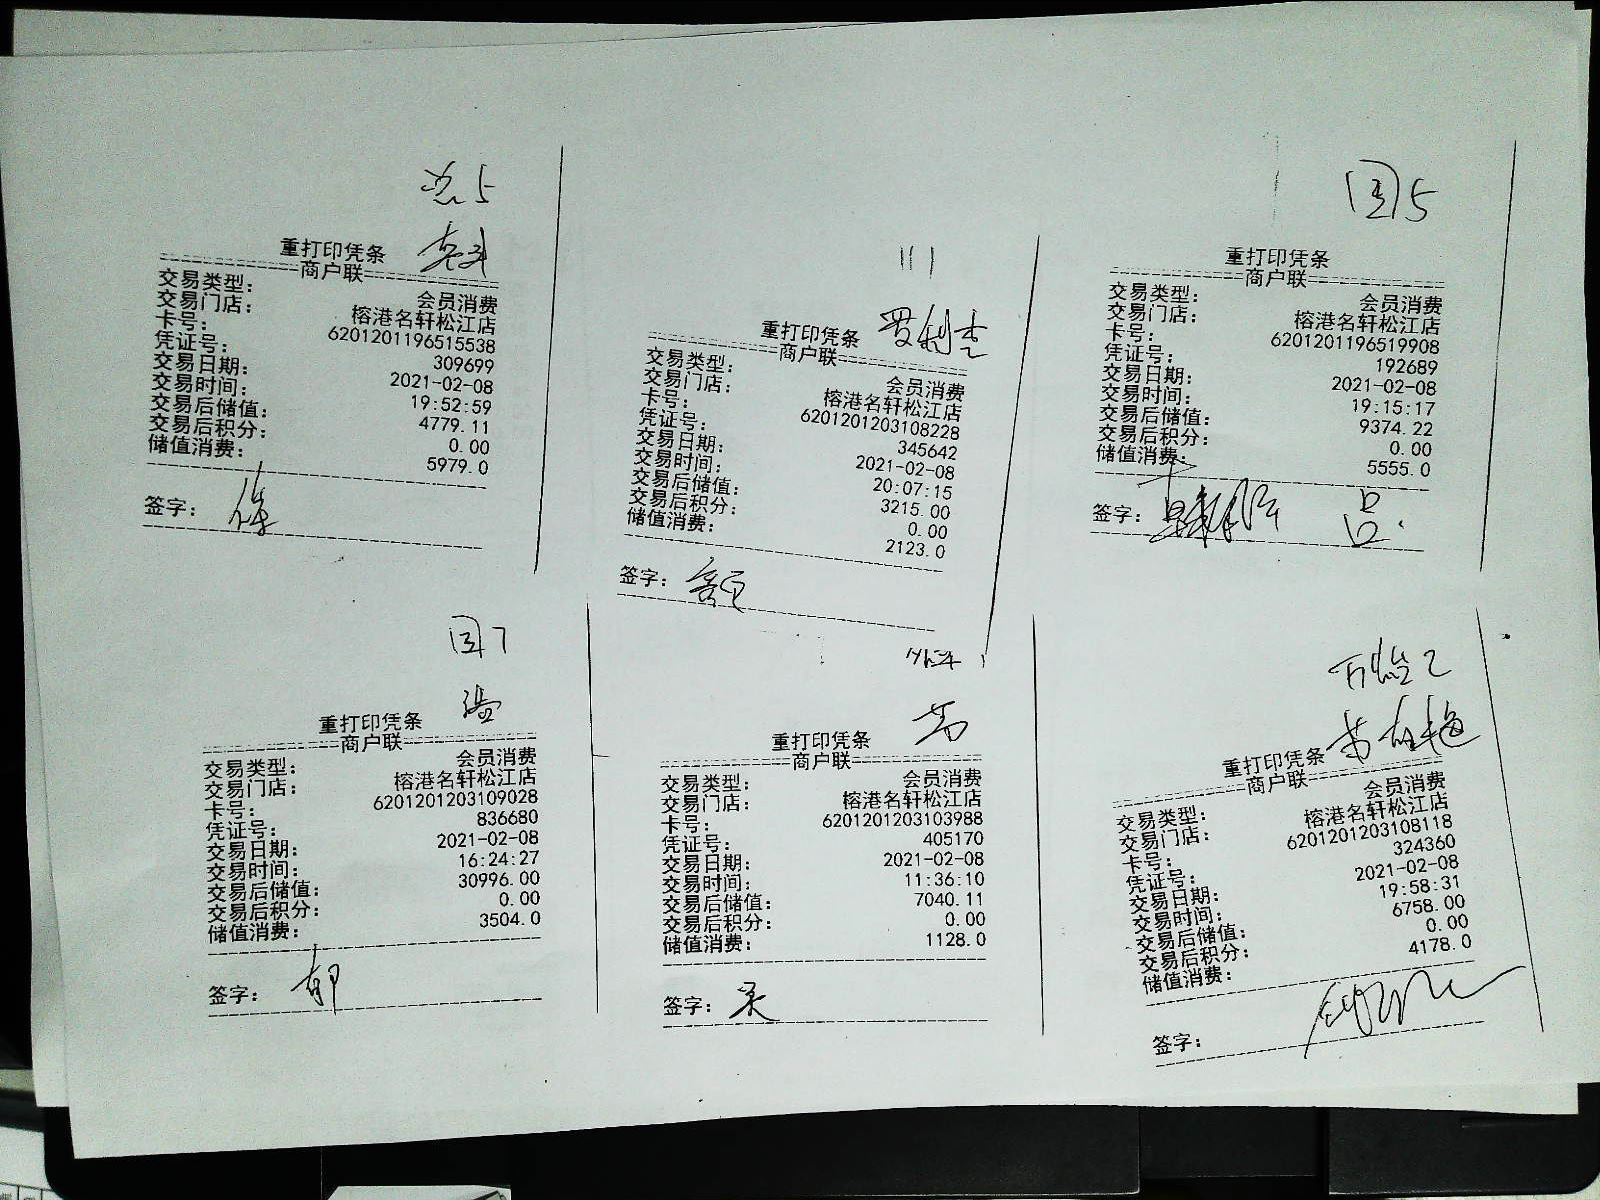 重打印凭条
商户联
交易类型： 会员消费
交易门店： 榕港名轩松江店
卡号： 6201201196515538
凭证号： 309699
交易日期： 2021-02-08
交易时间： 19:52:59
交易后储值： 4779.11
交易后积分： 0.00
储值消费： 5979.0
签字：
111
重打印凭条 罗利杰
商户联
交易类型： 会员消费
交易门店： 榕港名轩松江店
卡号： 6201201203108228
凭证号： 345642
交易日期： 2021-02-08
交易时间： 20:07:15
交易后储值： 3215.00
交易后积分： 0.00
储值消费： 2123.0
签字：
重打印凭条
商户联
交易类型： 会员消费
交易门店： 榕港名轩松江店
卡号： 6201201196519908
凭证号： 192689
交易日期： 2021-02-08
交易时间： 19:15:17
交易后储值： 9374.22
交易后积分： 0.00
储值消费： 5555.0
签字： 吕
重打印凭条
商户联
交易类型： 会员消费
交易门店： 榕港名轩松江店
卡号： 6201201203109028
凭证号： 836680
交易日期： 2021-02-08
交易时间： 16:24:27
交易后储值： 30996.00
交易后积分： 0.00
储值消费： 3504.0
签字： 郁
重打印凭条
商户联
交易类型： 会员消费
交易门店： 榕港名轩松江店
卡号： 6201201203103988
凭证号： 405170
交易日期： 2021-02-08
交易时间： 11:36:10
交易后储值： 7040.11
交易后积分： 0.00
储值消费： 1128.0
签字： 吴
重打印凭条
商户联
交易类型： 会员消费
交易门店： 榕港名轩松江店
卡号： 6201201203108118
凭证号： 324360
交易日期： 2021-02-08
交易时间： 19:58:31
交易后储值： 6758.00
交易后积分： 0.00
储值消费： 4178.0
签字：